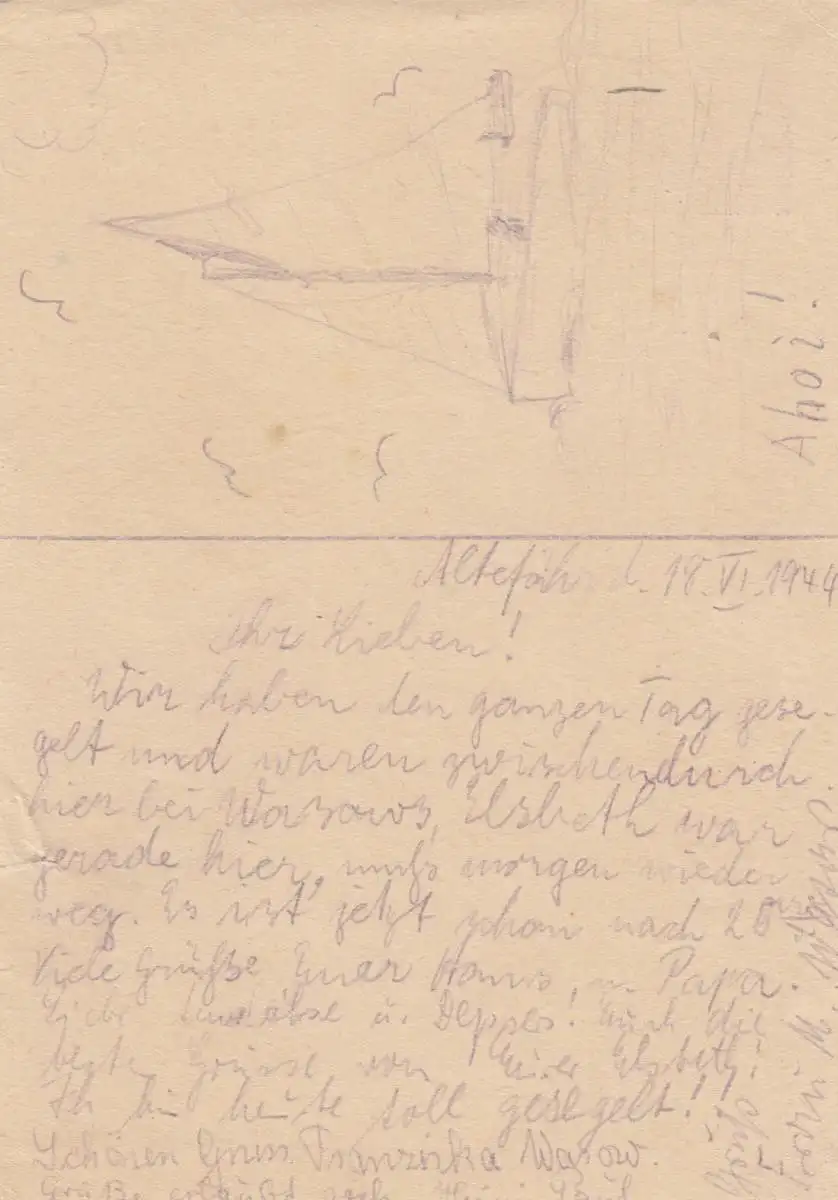 Ahoi!
Altefähr d. 18.VI.1944
Ihr Lieben!
Wir haben den ganzen Tag gese-
gelt und waren zwischendurch
hier bei Warsows, Elsbeth war
gerade hier, muß morgen wieder
weg. Es ist jetzt schon nach 20
Viele Grüße Euer Hans, u. Papa.
u. Auch die
Grüsse von Eurer Elsbeth!
Ich bin heute toll gesegelt!!
Schönen Gruss Franziska Warsow.
Grüße erlaubt sich